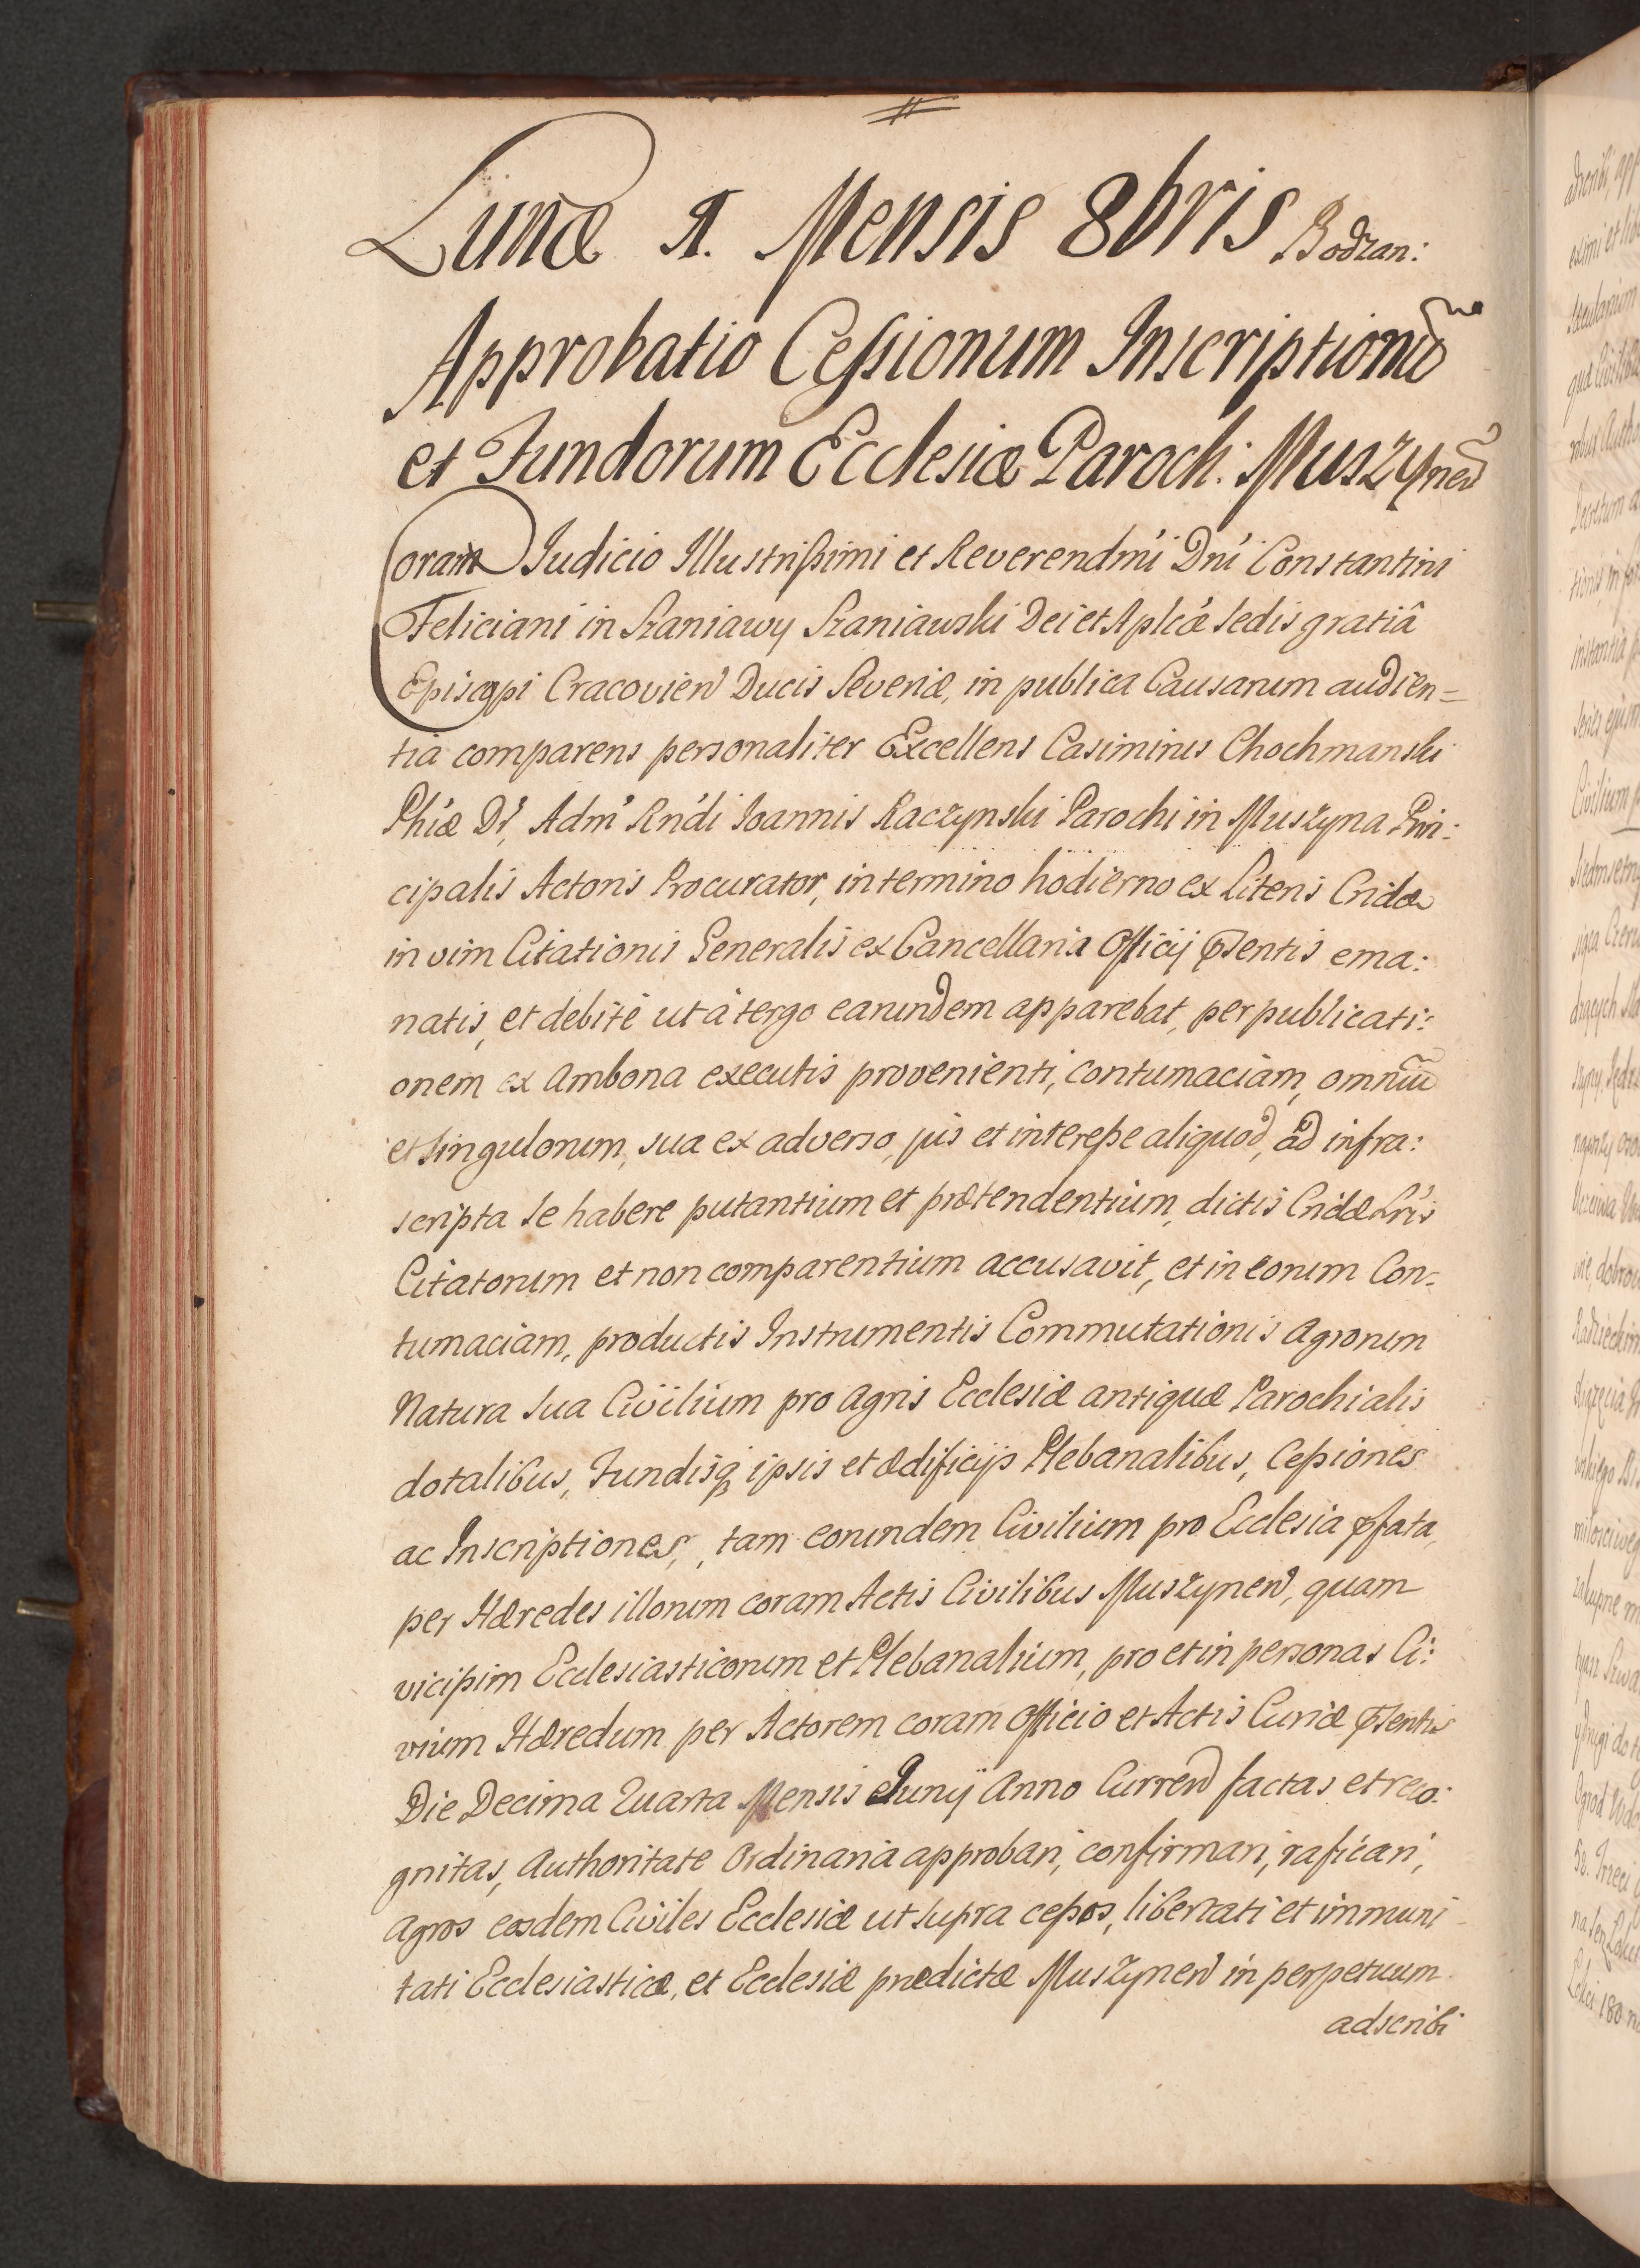 Lunæ 1. Mensis 8bris Bodzan:
Approbatio Cessionum Inscriptionũ
et Fundorum Ecclesiæ Paroch: Muszyneñ
Coram Iudicio Illustrissimi et Reverendm̃i Dñi Constantini
Feliciani in Szaniawy Szaniawski Dei et Aplicæ Sedis gratiâ
Episcopi Cracovien̄ Ducis Severiæ, in publica Causarum audien=
tia comparens personaliter Excellens Casimirus Chochmanski
Phiæ Dr, Adm̃ Rndi Ioannis Raczynski Parochi in Muszyna Prin:
cipalis Actoris Procurator, in termino hodierno ex Literis Cridæ
in vim Citationis Generalis ex Cancellaria Officij p̄sentis ema:
natis, et debitè ut à tergo earundem apparebat, per publicati:
onem ex Ambona executis provenienti, contumaciam, omniũ
et singulorum, sua ex adverso, jus et interesse aliquod, ad infra:
scripta se habere putantium et prætendentium, dictis Cridæ Lris
Citatorum et non comparentium accusavit, et in eorum Con-
tumaciam, productis Instrumentis Commutationis Agrorum
Natura sua Civilium pro Agris Ecclesiæ antiquæ Parochialis
dotalibus, Fundisq ipsis et ædificijs Plebanalibus, Cessiones
ac Inscriptiones, tam eorundem Civilium pro Ecclesia p̄fata,
per Hæredes illorum coram Actis Civilibus Muszynen̄, quam
vicissim Ecclesiasticorum et Plebanalium, pro et in personas Ci:
vium Hæredum per Actorem coram Officio et Actis Curiæ p̄sentis
Die Decima Quarta Mensis Junij Anno Curren̄ factas et reco:
gnitas, Authoritate Ordinaria approbari, confirmari, raficari,
Agros eosdem Civiles Ecclesiæ ut supra cessos, libertati et immuni
tati Ecclesiasticæ, et Ecclesiæ prædictæ Muszynen̄ in perpetuum
adscribi